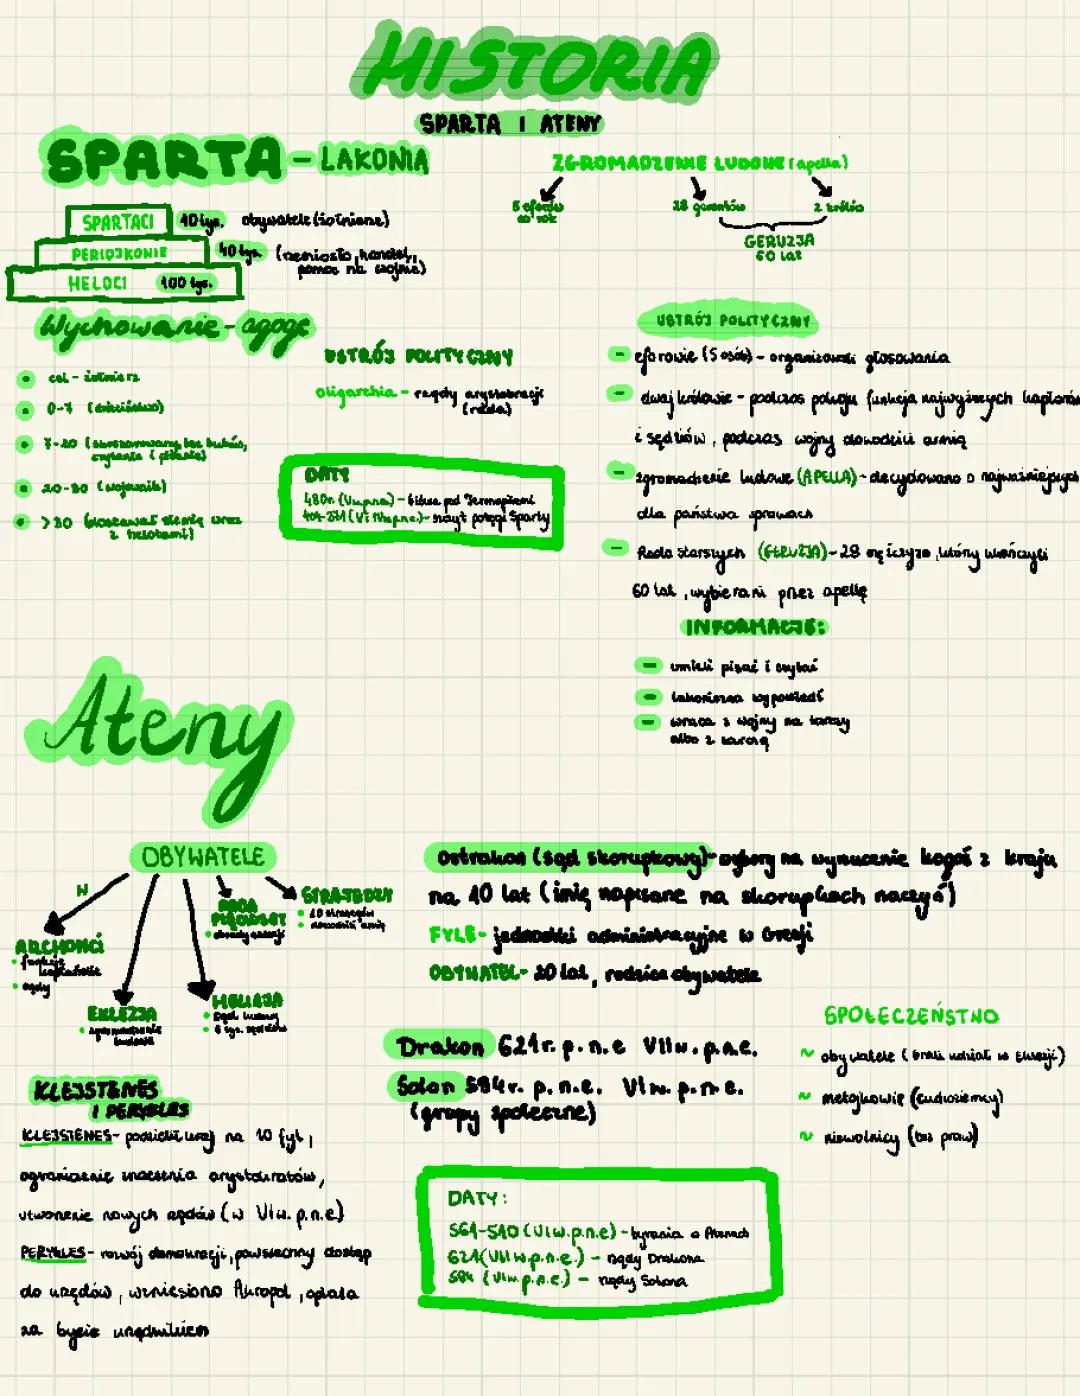 HISTORIA
SPARTA I ATENY
SPARTA - LAKONIA
SPARTACI 10 tys. obywatele (żołnierze)
PERIOJKOWIE 40 tys. (rzemiosło, handel,
pomoc na wojnie)
HELOCI 100 tys.
ZGROMADZENIE LUDOWE (apella)
5 eforów
co rok
28 gerontów
2 królów
GERUZJA
60 lat
Wychowanie - agoge
cel - żołnierz
0-7 (dzieciństwo)
7-20 (skoszarowany, bez butów,
czytanie i pisanie)
20-30 (wojownik)
>30 (dostawał ziemię wraz
z helotami)
USTRÓJ POLITYCZNY
oligarchia - rządy arystokracji
(rada)
DATY
480r. (V w.p.n.e) - bitwa pod Termopilami
404-371 (V i IV w.p.n.e.) - szczyt potęgi Sparty
USTRÓJ POLITYCZNY
- eforowie (5 osób) - organizowali głosowania
- dwaj królowie - podczas pokoju funkcja najwyższych kapłanów
i sędziów, podczas wojny dowodzili armią
- zgromadzenie ludowe (APELLA) - decydowano o najważniejszych
dla państwa sprawach
- Rada Starszych (GERUZJA) - 28 mężczyzn, którzy ukończyli
60 lat, wybierani przez apellę
INFORMACJE:
- umieli pisać i czytać
- lakoniczna wypowiedź
- wraca z wojny na tarczy
albo z tarczą
Ateny
OBYWATELE
W
ARCHONCI
funkcje
kapłańskie
sądy
EKLEZJA
zgromadzenie
ludowe
HELIAJA
sąd ludowy
6 tys. sędziów
RADA
PIĘCIUSET
obrady eklezji
STRATEDZY
10 strategów
dowodzili armią
Ostrakon (sąd skorupkowy) - wybory na wyrzucenie kogoś z kraju
na 10 lat (imię napisane na skorupkach naczyń)
FYLE - jednostki administracyjne w Grecji
OBYWATEL - 20 lat, rodzice obywatele
Drakon 621r. p.n.e VII w. p.n.e.
Solon 594r. p.n.e. VI w. p.n.e.
(grupy społeczne)
SPOŁECZEŃSTWO
~ obywatele (brali udział w Eklezji)
~ metojkowie (cudzoziemcy)
~ niewolnicy (bez praw)
KLEJSTENES
I PERYKLES
KLEJSTENES - podzielił kraj na 10 fyl,
ograniczenie znaczenia arystokratów,
utworzenie nowych rządów (w VI w. p.n.e)
PERYKLES - rozwój demokracji, powszechny dostęp
do urzędów, wzniesiono Akropol, opłata
za bycie urzędnikiem
DATY:
561-510 (VI w.p.n.e) - tyrania w Atenach
621 (VII w.p.n.e.) - rządy Drakona
594 (VI w.p.n.e.) - rządy Solona